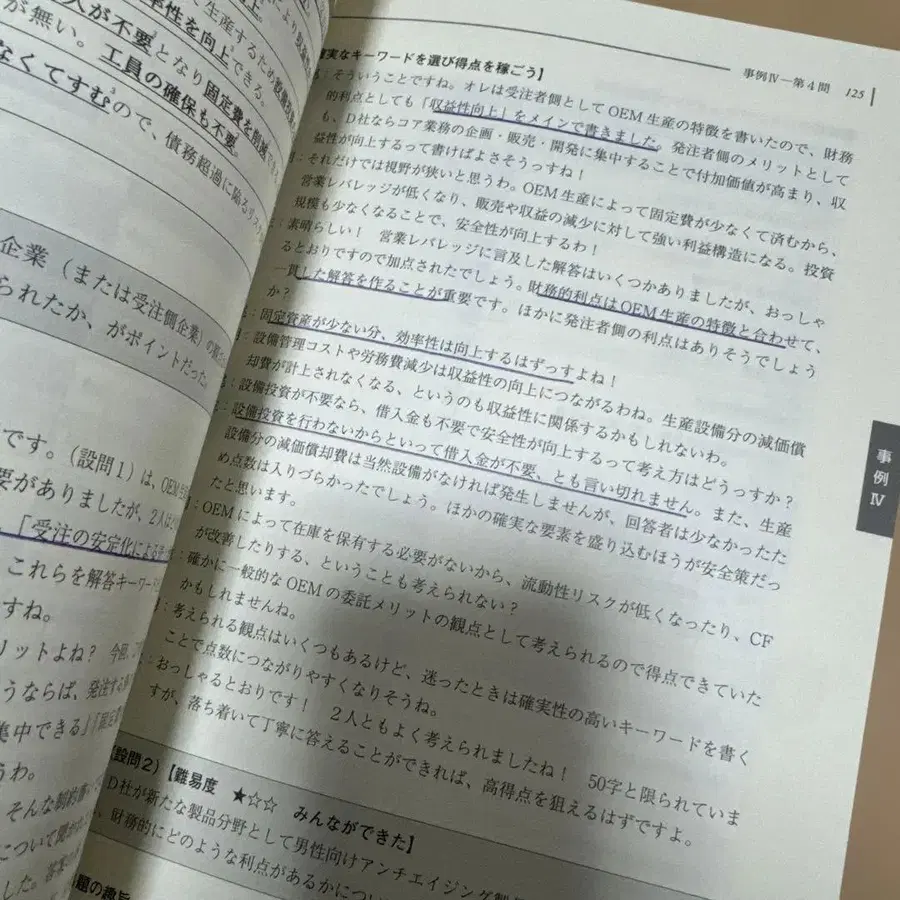 率性を向上
人が不要となり固定費を削減
が無い。工員の確保も不要。
なくてすむので、債務超過に陥るリス
企業（または受注側企業）の
られたか、がポイントだった
です。（設問1）は、OEM生
要がありましたが、2人は
、「受注の安定化による
これらを解答キーワー
すね。
リットよね？　今回、
うならば、発注する
集中できる」「固定
うわ。
そんな制約
について聞か
した。答案の
事例Ⅳ―第4問　125
確実なキーワードを選び得点を稼ごう】
：そういうことですね。オレは受注者側としてOEM生産の特徴を書いたので、財務
的利点としても「収益性向上」をメインで書きました。発注者側のメリットとして
も、D社ならコア業務の企画・販売・開発に集中することで付加価値が高まり、収
益性が向上するって書けばよさそうっすね！
：それだけでは視野が狭いと思うわ。OEM生産によって固定費が少なくて済むから、
営業レバレッジが低くなり、販売や収益の減少に対して強い利益構造になる。投資
規模も少なくなることで、安全性が向上するわ！
：素晴らしい！　営業レバレッジに言及した解答はいくつかありましたが、おっしゃ
るとおりですので加点されたでしょう。財務的利点はOEM生産の特徴と合わせて、
一貫した解答を作ることが重要です。ほかに発注者側の利点はありそうでしょう
か？
：固定資産が少ない分、効率性は向上するはずっすよね！
：設備管理コストや労務費減少は収益性の向上につながるわね。生産設備分の減価償
却費が計上されなくなる、というのも収益性に関係するかもしれないわ。
：設備投資が不要なら、借入金も不要で安全性が向上するって考え方はどうっすか？
：設備投資を行わないからといって借入金が不要、とも言い切れません。また、生産
設備分の減価償却費は当然設備がなければ発生しませんが、回答者は少なかったた
め点数は入りづらかったでしょう。ほかの確実な要素を盛り込むほうが安全策だっ
たと思います。
：OEMによって在庫を保有する必要がないから、流動性リスクが低くなったり、CF
が改善したりする、ということも考えられない？
：確かに一般的なOEMの委託メリットの観点として考えられるので得点できていた
かもしれませんね。
：考えられる観点はいくつもあるけど、迷ったときは確実性の高いキーワードを書く
ことで点数につながりやすくなりそうね。
：おっしゃるとおりです！　2人ともよく考えられましたね！　50字と限られていま
すが、落ち着いて丁寧に答えることができれば、高得点を狙えるはずですよ。
（設問2）【難易度　★☆☆　みんなができた】
D社が新たな製品分野として男性向けアンチエイジング製
、財務的にどのような利点があるかについ
題の趣旨
事例Ⅳ